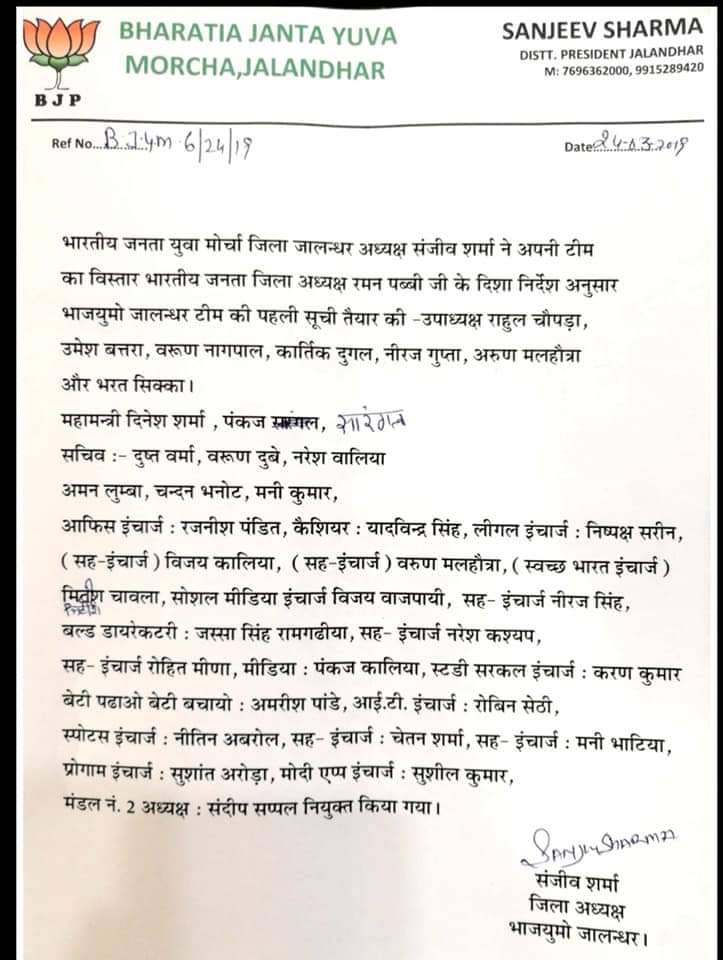 BHARATIA JANTA YUVA
MORCHA,JALANDHAR
SANJEEV SHARMA
DISTT. PRESIDENT JALANDHAR
M: 7696362000, 9915289420
BJP
Ref No...B.J.y.M.6/24/19
Date...24-03-2019
भारतीय जनता युवा मोर्चा जिला जालन्धर अध्यक्ष संजीव शर्मा ने अपनी टीम
का विस्तार भारतीय जनता जिला अध्यक्ष रमन पब्बी जी के दिशा निर्देश अनुसार
भाजयुमो जालन्धर टीम की पहली सूची तैयार की -उपाध्यक्ष राहुल चौपड़ा,
उमेश बत्तरा, वरूण नागपाल, कार्तिक दुगल, नीरज गुप्ता, अरुण मलहौत्रा
और भरत सिक्का।
महामन्त्री दिनेश शर्मा , पंकज सारंगल,
सचिव :- दुष्त वर्मा, वरूण दुबे, नरेश वालिया
अमन लुम्बा, चन्दन भनोट, मनी कुमार,
आफिस इंचार्ज : रजनीश पंडित, कैशियर : यादविन्द्र सिंह, लीगल इंचार्ज : निष्पक्ष सरीन,
( सह-इंचार्ज ) विजय कालिया, ( सह-इंचार्ज ) वरुण मलहौत्रा, ( स्वच्छ भारत इंचार्ज )
चावला, सोशल मीडिया इंचार्ज विजय वाजपायी, सह- इंचार्ज नीरज सिंह,
बल्ड डायरेकटरी : जस्सा सिंह रामगढीया, सह- इंचार्ज नरेश कश्यप,
सह- इंचार्ज रोहित मीणा, मीडिया : पंकज कालिया, स्टडी सरकल इंचार्ज : करण कुमार
बेटी पढाओ बेटी बचायो : अमरीश पांडे, आई.टी. इंचार्ज : रोबिन सेठी,
स्पोटस इंचार्ज : नीतिन अबरोल, सह- इंचार्ज : चेतन शर्मा, सह- इंचार्ज : मनी भाटिया,
प्रोगाम इंचार्ज : सुशांत अरोड़ा, मोदी एप्प इंचार्ज : सुशील कुमार,
मंडल नं. 2 अध्यक्ष : संदीप सप्पल नियुक्त किया गया।
संजीव शर्मा
जिला अध्यक्ष
भाजयुमो जालन्धर।